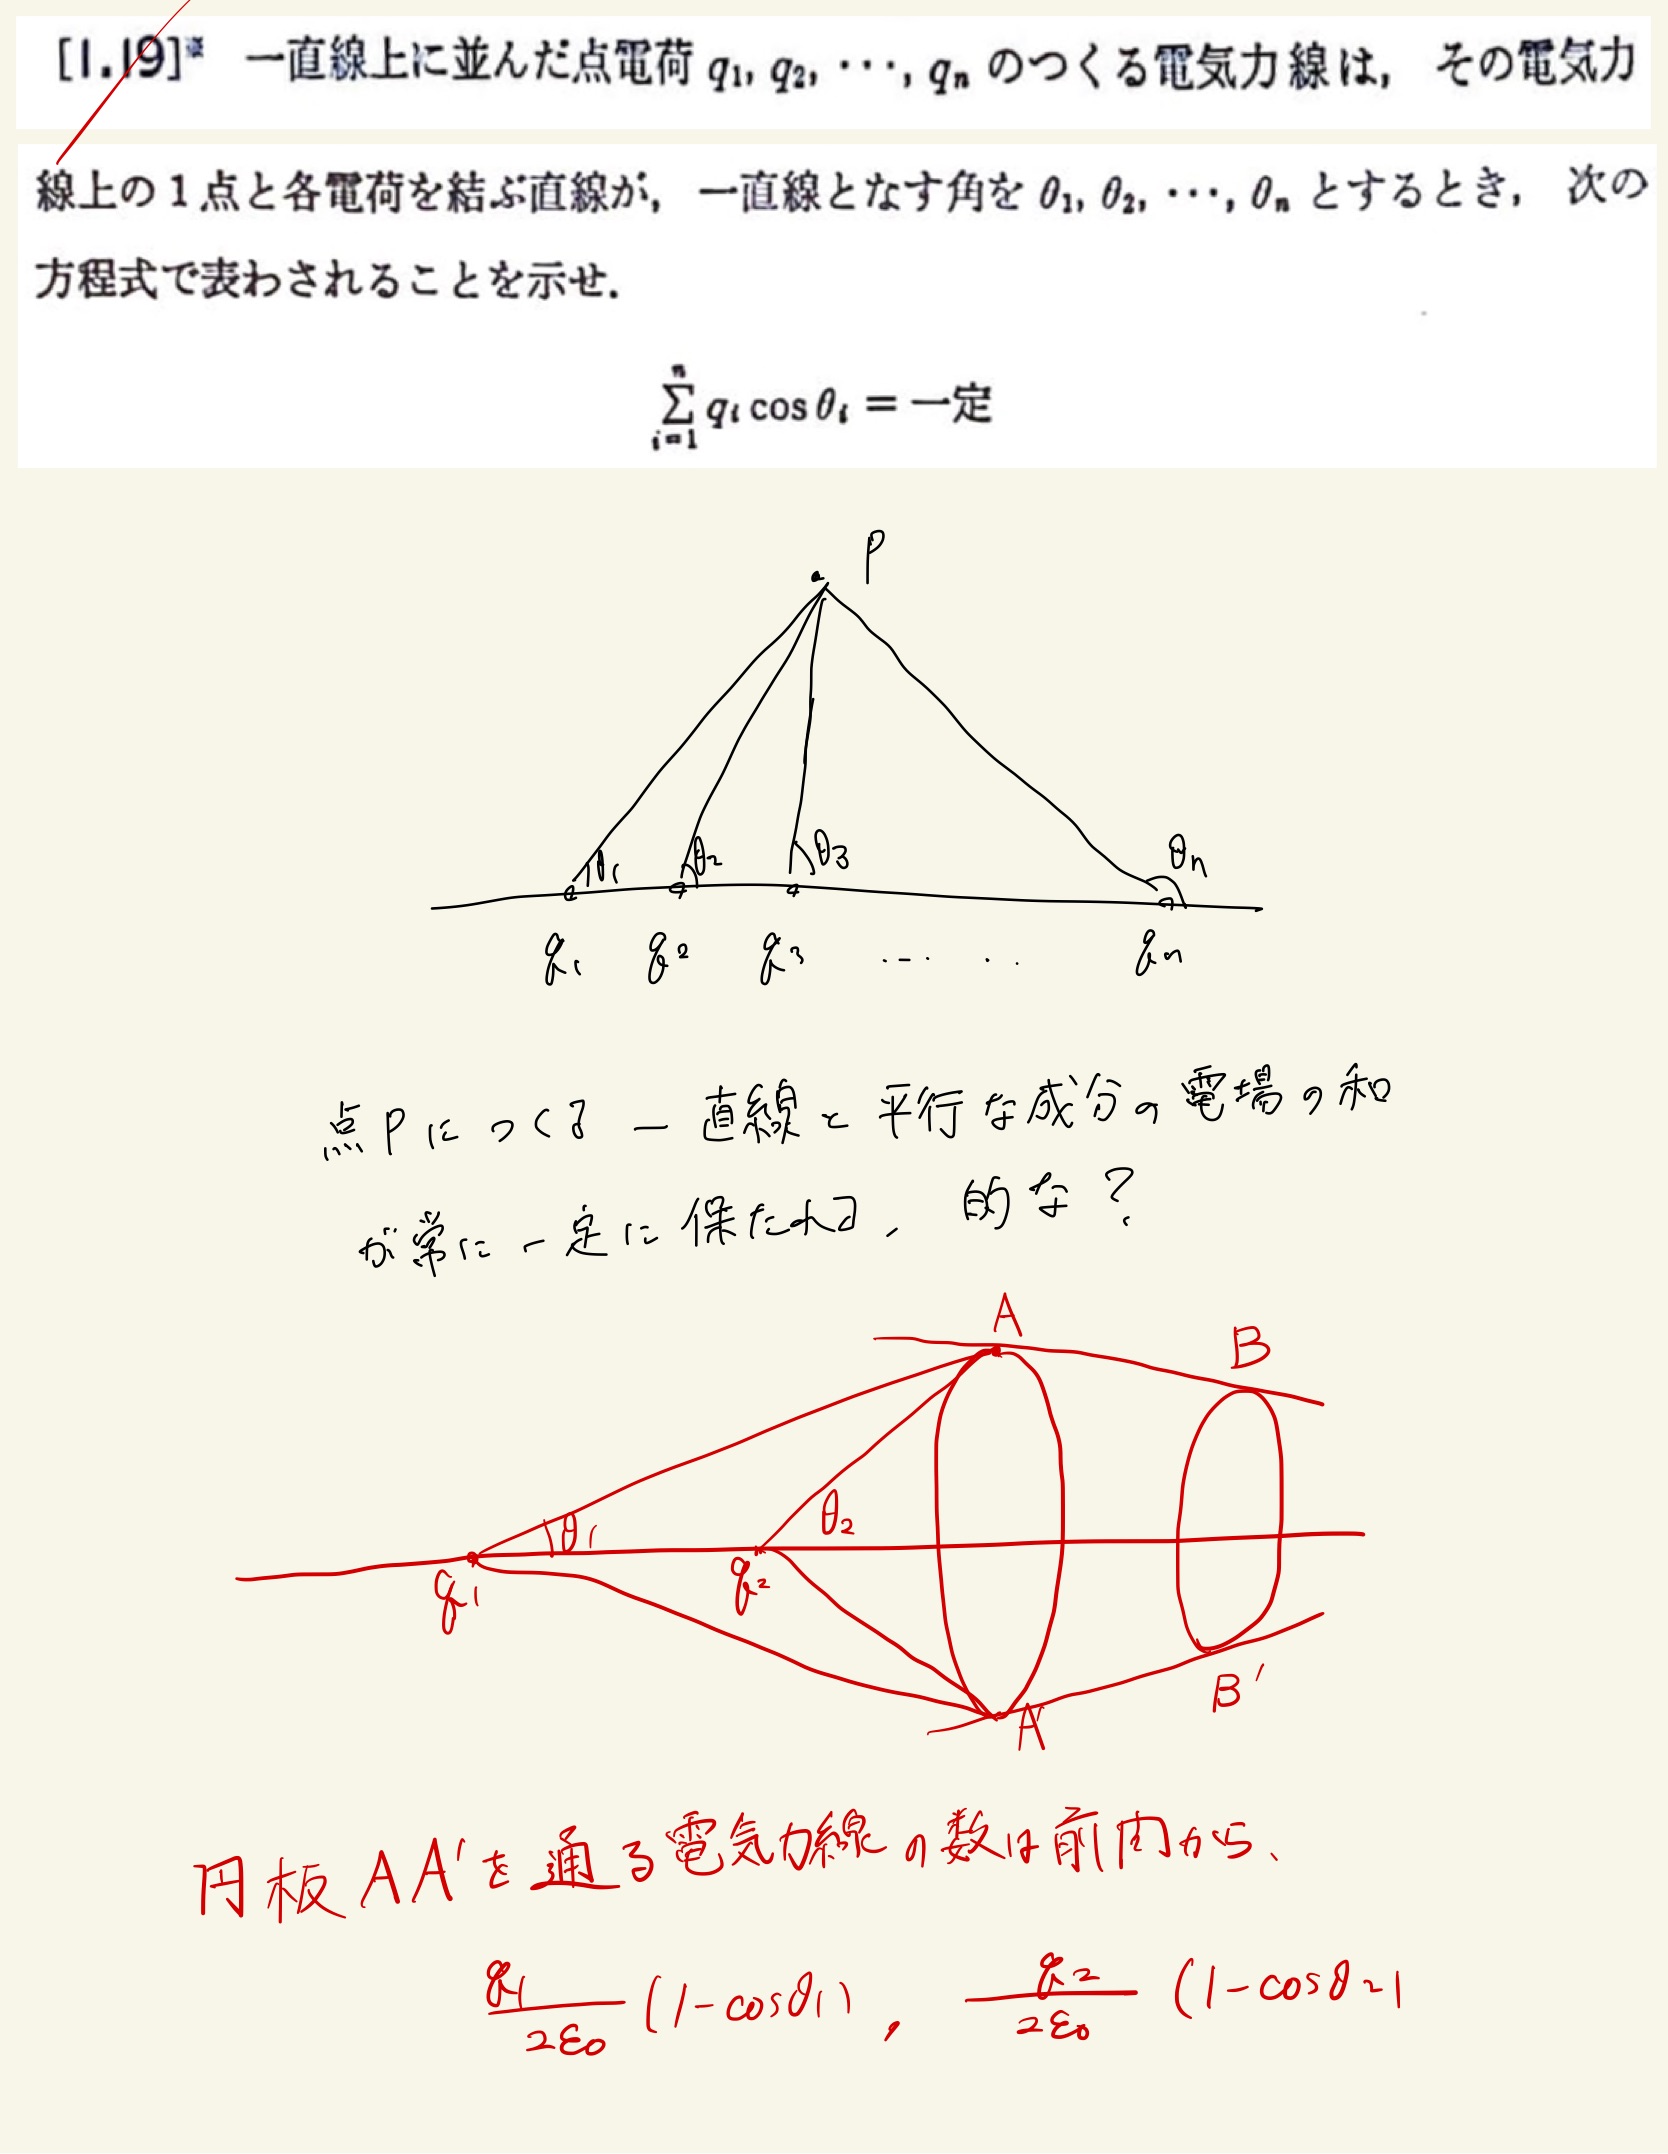 [1.19]※ 一直線上に並んだ点電荷 q₁, q₂, ⋯, qₙ のつくる電気力線は, その電気力
線上の1点と各電荷を結ぶ直線が, 一直線となす角を θ₁, θ₂, ⋯, θₙ とするとき, 次の
方程式で表わされることを示せ.
n
Σ qᵢ cos θᵢ = 一定
i=1
P
θ₁ θ₂ θ₃ θn
q₁ q₂ q₃ ‥‥ ‥ qn
点Pにつくる一直線と平行な成分の電場の和
が常に一定に保たれる, 的な?
A B
θ₁ θ₂
q₁ q₂
A' B'
円板AA'を通る電気力線の数は前問から、
q₁/2ε₀ (1-cosθ₁), q₂/2ε₀ (1-cosθ₂)